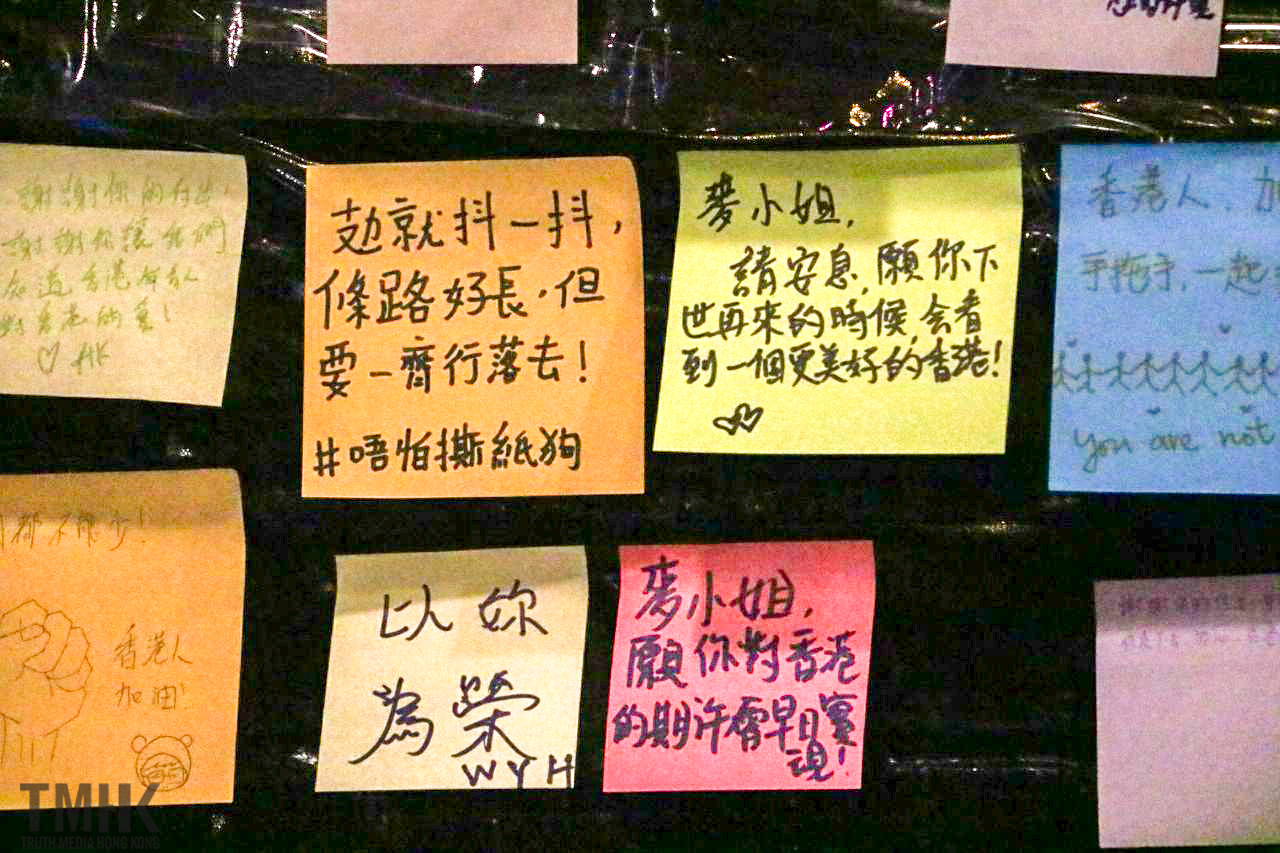 謝謝你的付出!
謝謝你讓我們
知道香港有人
對香港的愛!
♡ HK
攰就抖一抖，
條路好長，但
要一齊行落去！
#唔怕撕紙狗
麥小姐，
請安息，願你下
世再來的時候，会看
到一個更美好的香港！
香港人，加
手拖手，一起
you are not
都不能少！
香港人
加油！
以妳
為榮
WYH
麥小姐，
願你對香港
的期許會早日實
現！
TMHK
TRUTH MEDIA HONG KONG